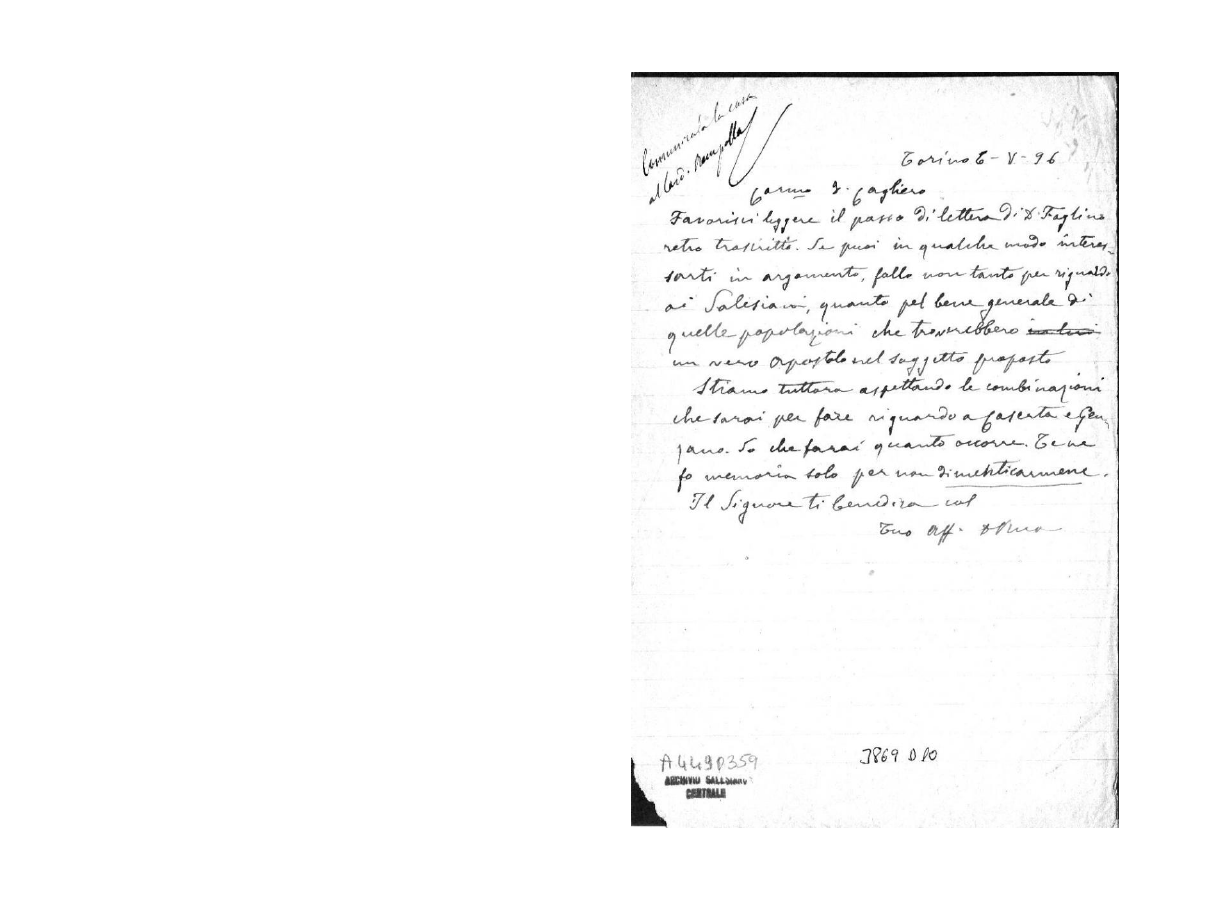 Comunicata la cosa
al Card. Rampolla
Torino 6 - V - 96
Carmo D. Cagliero
Favorisci leggere il passo di lettera di D. Foglino
retro trascritto. Se puoi in qualche modo interes-
sarti in argomento, fallo non tanto per riguardo
ai Salesiani, quanto pel bene generale di
quelle popolazioni che troverebbero
un vero apostolo nel soggetto proposto
Stiamo tuttora aspettando le combinazioni
che sarai per fare riguardo a Caserta e Gen-
zano. So che farai quanto occorre. Te ne
fo memoria solo per non dimenticarmene.
Il Signore ti benedica col
Tuo Aff. D Rua
A4490359
3869 D10
ARCHIVIO SALESIANO
CENTRALE